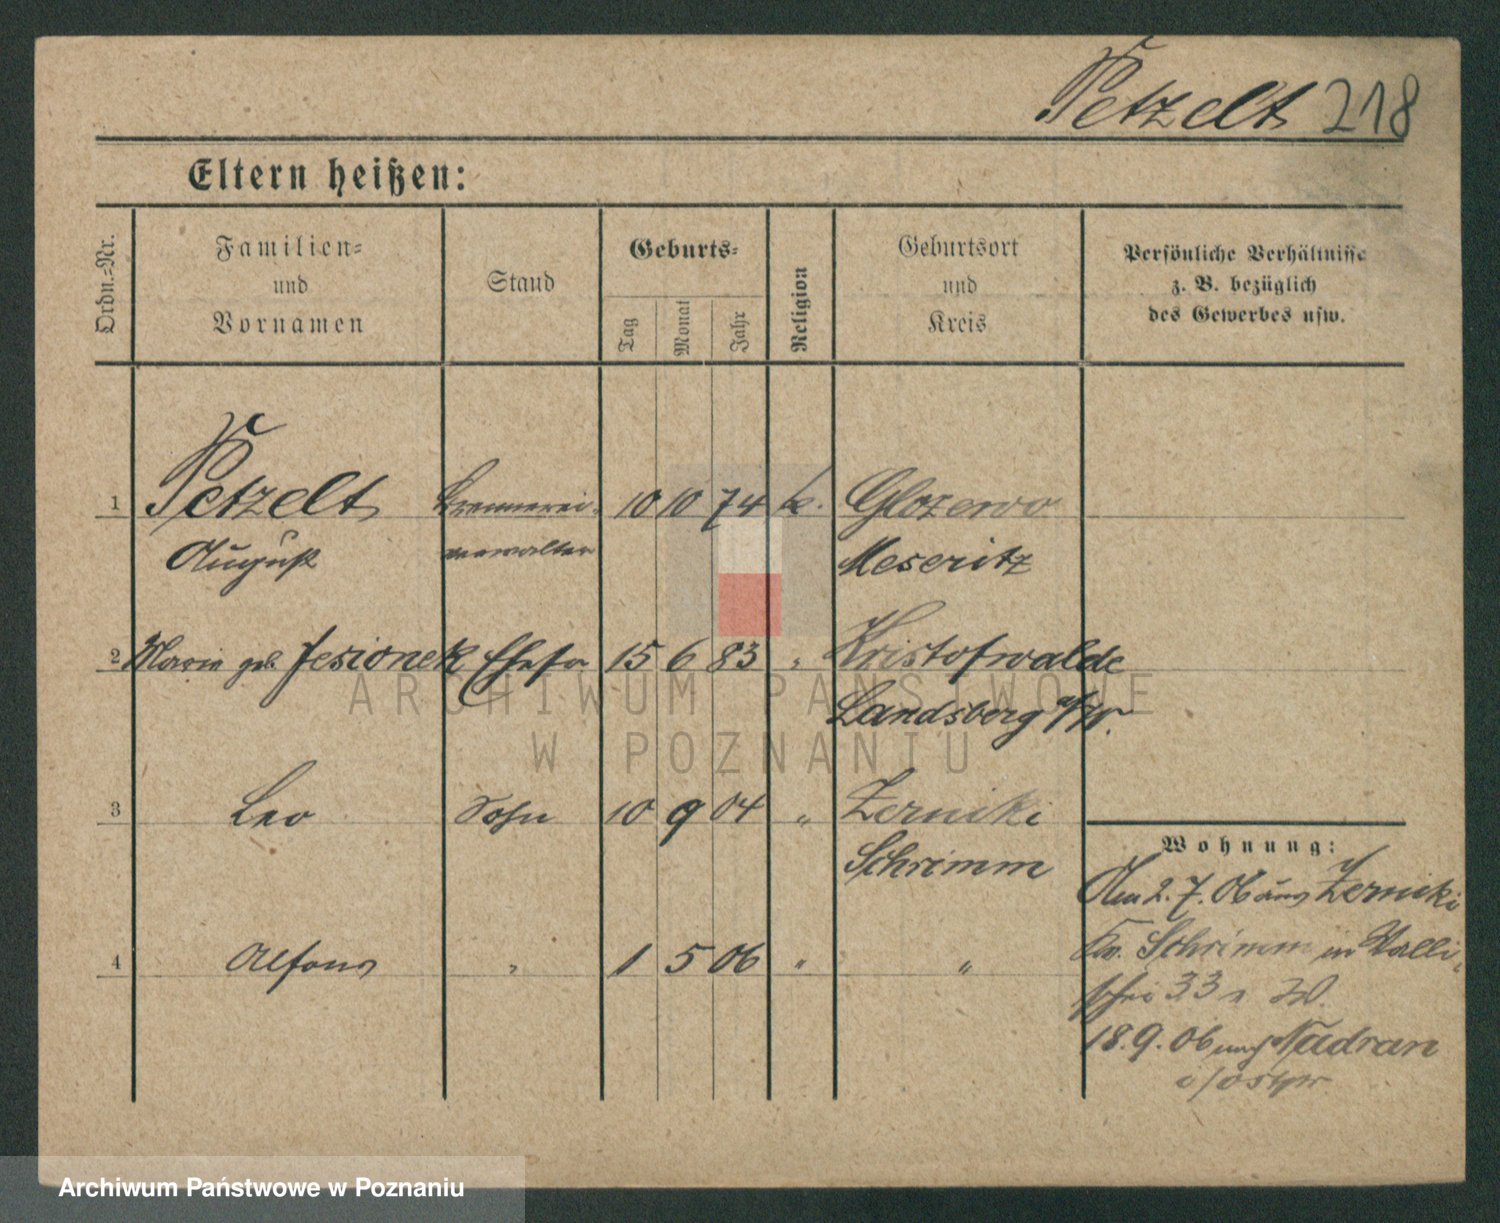 Petzelt 218
Eltern heißen:
Ordn.-Nr.
Familien-
und
Vornamen
Stand
Geburts-
Tag
Monat
Jahr
Religion
Geburtsort
und
Kreis
Persönliche Verhältnisse
z. B. bezüglich
des Gewerbes usw.
1 Petzelt Brennerei- 10 10 74 k. Glozewo
August verwalter Meseritz
2 Marie geb. Jesionek Ehefr 15 6 83 " Kristofwalde
Landsberg a/W.
3 Leo Sohn 10 9 04 " Zerniki
Schrimm
4 Alfons " 1 5 06 " "
Wohnung:
Am 2. 7. 06 aus Zerniki
Kr. Schrimm in Walli-
schei 33
18. 9. 06 nach Nadran
i/Ostpr
ARCHIWUM PAŃSTWOWE
W POZNANIU
Archiwum Państwowe w Poznaniu